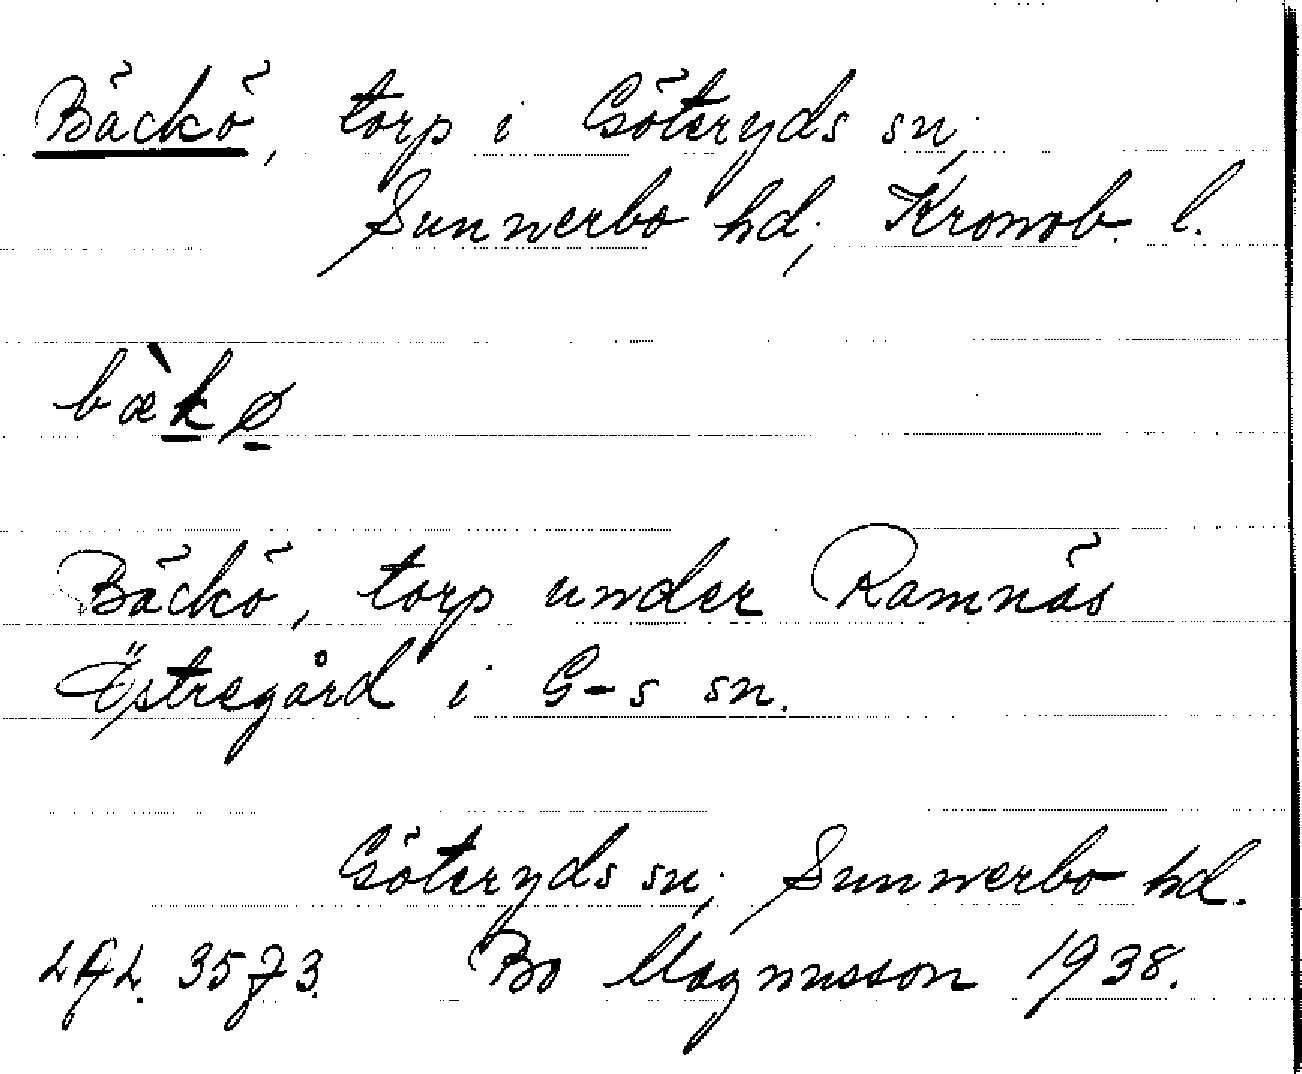 Bäckö, torp i Göteryds sn,
Sunnerbo hd, Kronob. l.
bæ̀kø
Bäckö, torp under Ramnäs
Östregård i G-s sn.
Göteryds sn, Sunnerbo hd.
3573. Bo Magnusson 1938.